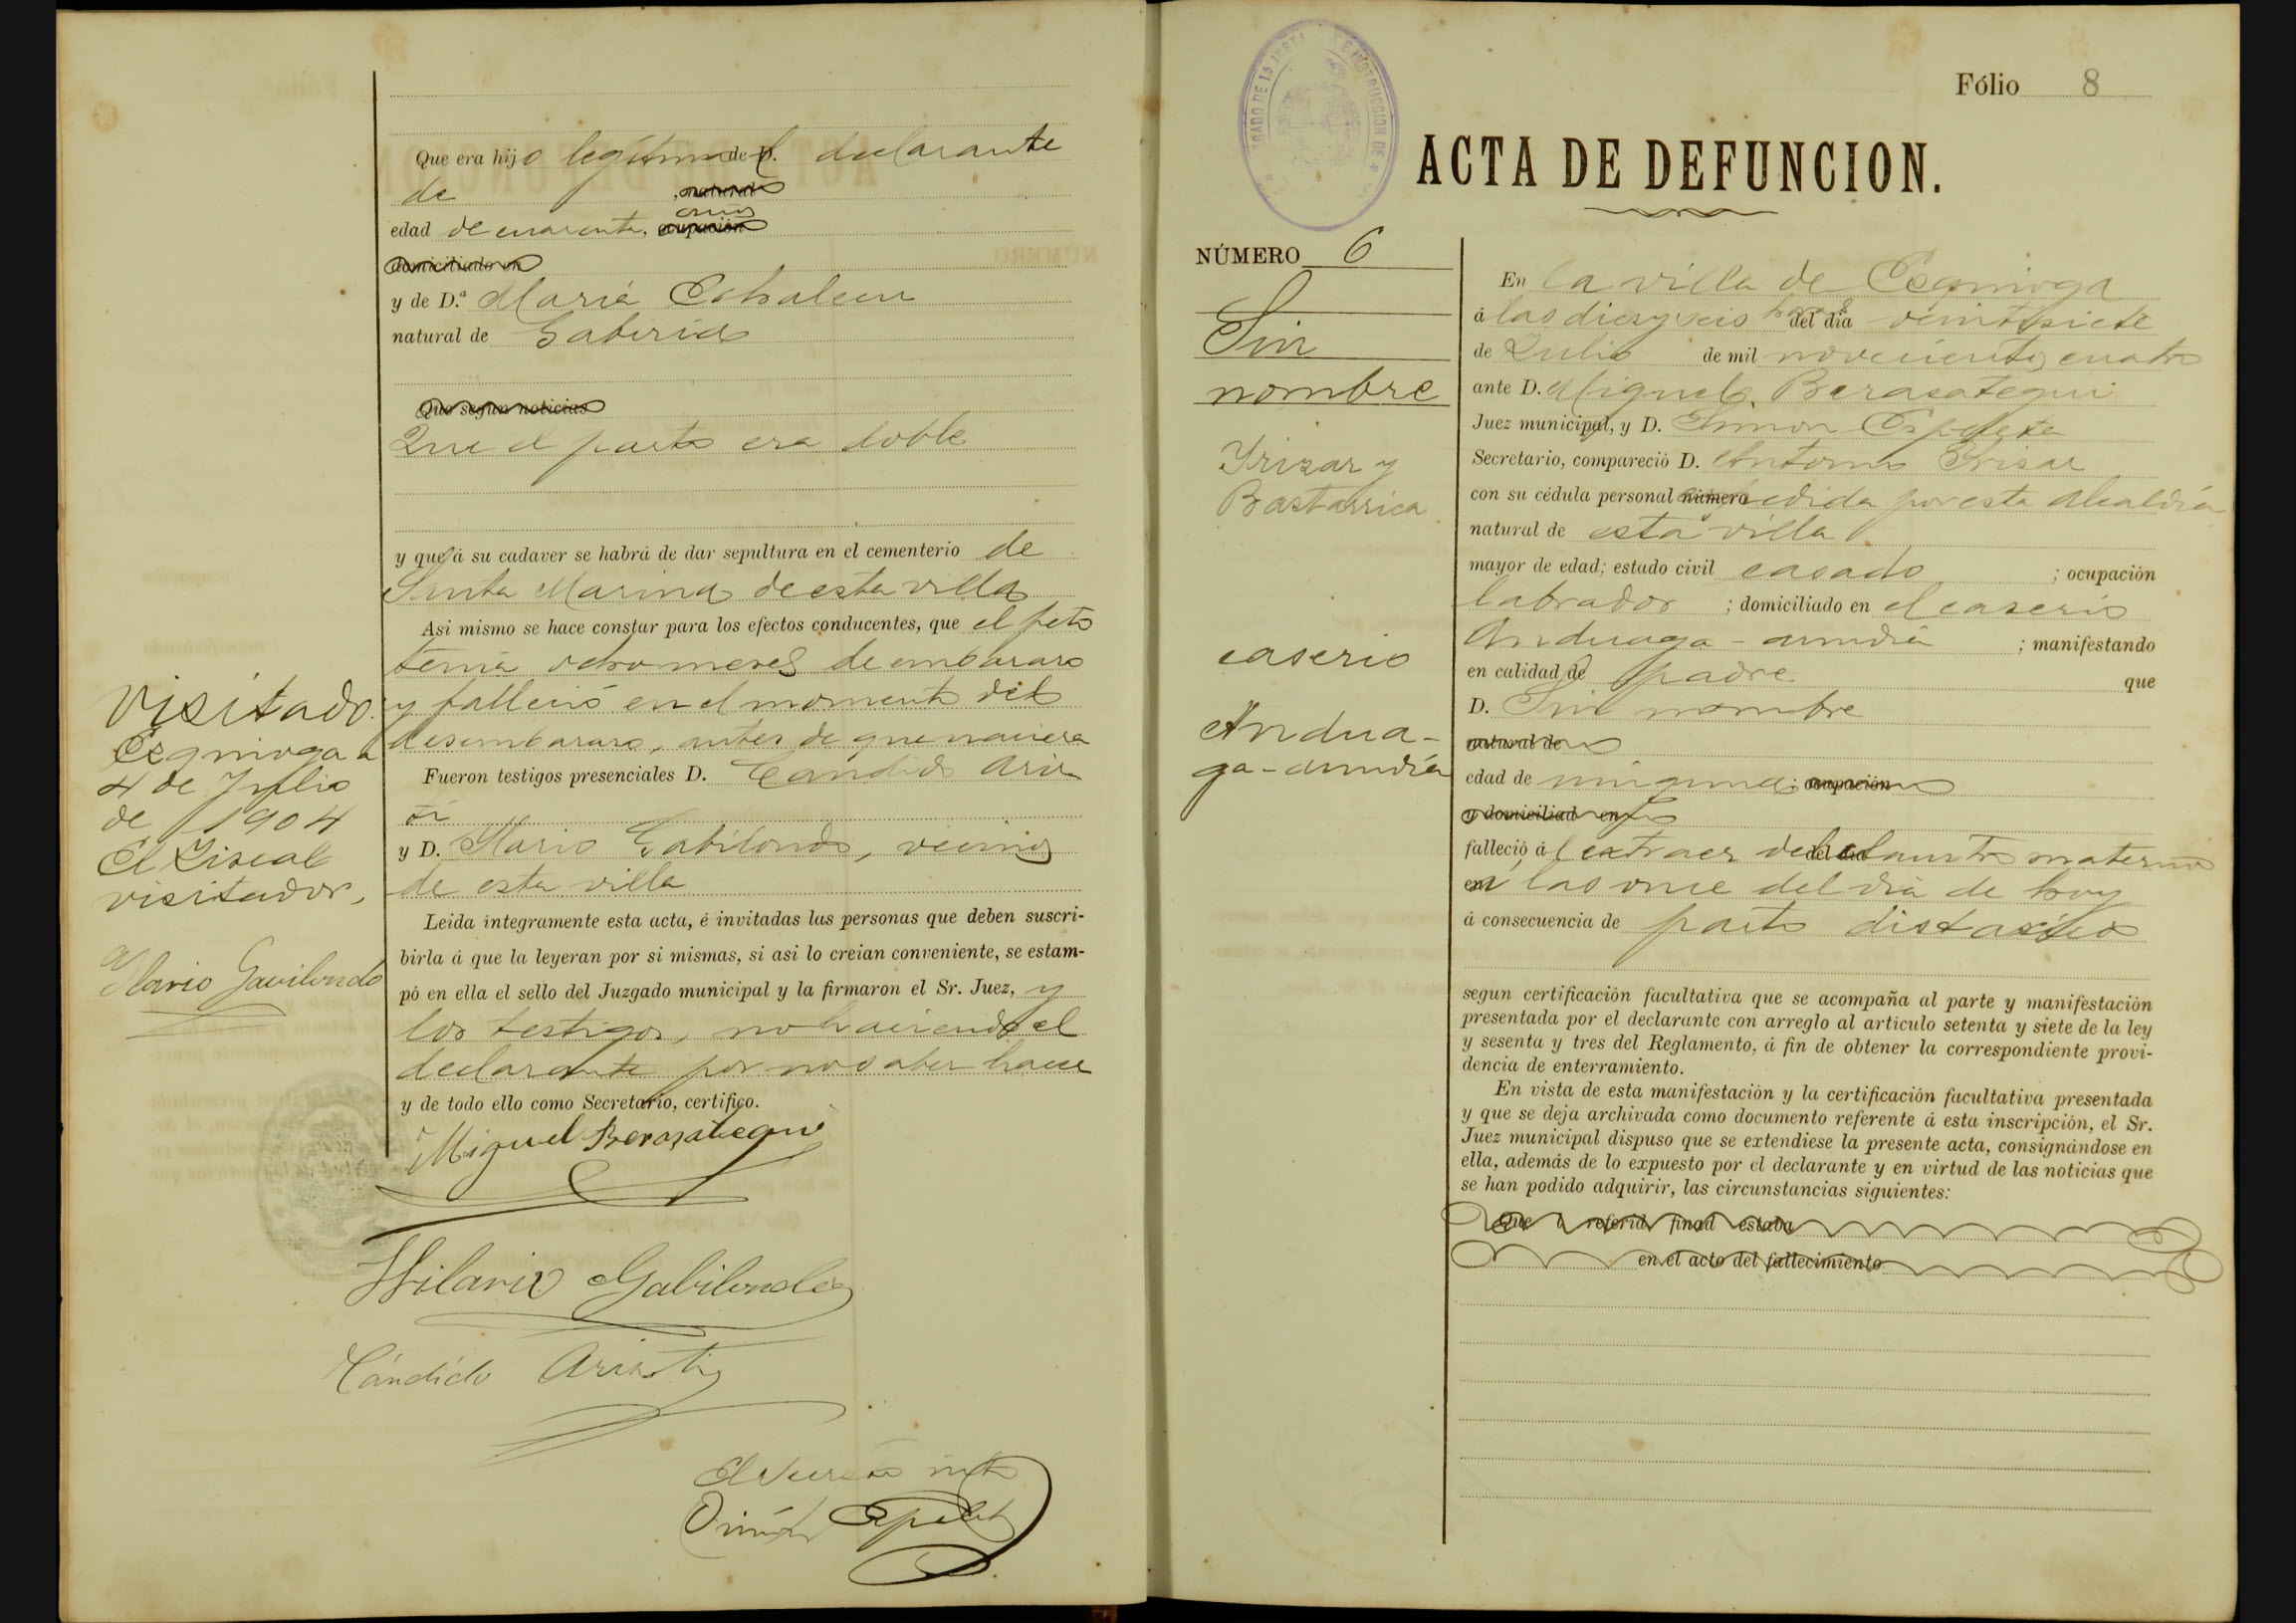 Que era hijo legítimo de D. declarante
de , natural
edad de cuarenta, años ocupación
domiciliado en
y de D.ª María
natural de Gabiria
Que segun noticias
Que el parto era doble
y que á su cadaver se habrá de dar sepultura en el cementerio de
Santa Marina de esta villa
Asi mismo se hace constar para los efectos conducentes, que el feto
tenia ocho meses de embarazo
y falleció en el momento del
desembarazo, antes de que naciera
Fueron testigos presenciales D. Cándido Aris
ti
y D. Ilario Gabilondo, vecinos
de esta villa
Leida íntegramente esta acta, é invitadas las personas que deben suscri-
birla á que la leyeran por si mismas, si asi lo creian conveniente, se estam-
pó en ella el sello del Juzgado municipal y la firmaron el Sr. Juez, y
los testigos, no haciendo el
declarante por no saber hacer
y de todo ello como Secretario, certifico.
Miguel Berasategui
Hilario Gabilondo
Cándido Aristi
El Secreto
Simón
Visitado.
Ezquioga a
4 de Julio
de 1904
El Fiscal
visitador,
Ilario Gavilondo
Fólio 8
ACTA DE DEFUNCION.
NÚMERO 6
Sin
nombre
Yrizar y
Bastarrica
caserio
Andua-
ga-aundia
En la villa de Ezquioga
á las diez y seis horas del dia veintisiete
de Julio de mil novecientos cuatro
ante D. Miguel Berasategui
Juez municipal, y D. Simon Ezpeleta
Secretario, compareció D. Antonio Irisar
con su cédula personal número expedida por esta Alcaldía
natural de esta villa
mayor de edad; estado civil casado ; ocupación
labrador ; domiciliado en el caserio
Anduaga-aundia ; manifestando
en calidad de padre que
D. Sin nombre
natural de
edad de ninguna ; ocupación
y domiciliad en
falleció á l extraer del del dia claustro materno
en á las once del dia de hoy
á consecuencia de parto distocico
segun certificación facultativa que se acompaña al parte y manifestación
presentada por el declarante con arreglo al articulo setenta y siete de la ley
y sesenta y tres del Reglamento, á fin de obtener la correspondiente provi-
dencia de enterramiento.
En vista de esta manifestación y la certificación facultativa presentada
y que se deja archivada como documento referente á esta inscripción, el Sr.
Juez municipal dispuso que se extendiese la presente acta, consignándose en
ella, además de lo expuesto por el declarante y en virtud de las noticias que
se han podido adquirir, las circunstancias siguientes:
Que l referid finad estaba
en el acto del fallecimiento